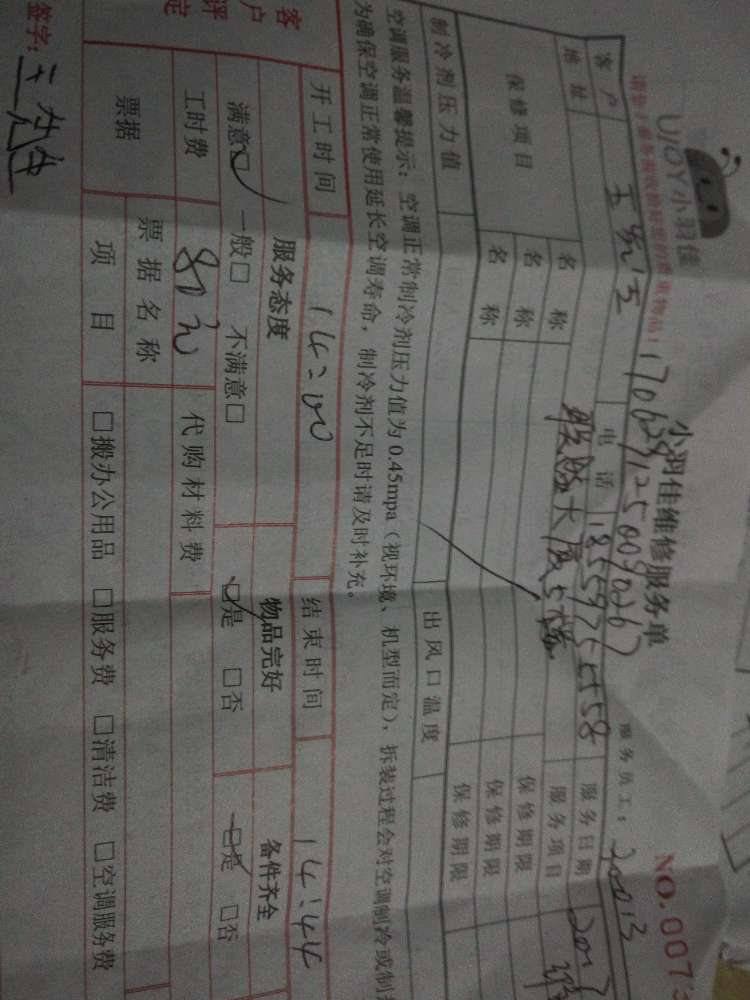 UJOY小羽佳
小羽佳维修服务单
NO.0073
服务员工：20013
客户
电话 18559755558
服务日期 2017
地址
大厦5楼
服务项目
保修项目
名称
保修期限
名称
保修期限
名称
保修期限
制冷剂压力值
出风口温度
空调服务温馨提示：空调正常制冷剂压力值为0.45mpa（视环境、机型而定），拆装过程会对空调制冷或制
为确保空调正常使用延长空调寿命，制冷剂不足时请及时补充。
开工时间 14:00 结束时间 14:44
客户评定
服务态度 物品完好 备件齐全
满意□ 一般□ 不满意□ □是 □否 □是 □否
工时费 80元 代购材料费
票据 票据名称
项目 □搬办公用品 □服务费 □清洁费 □空调服务费
签字：王先生